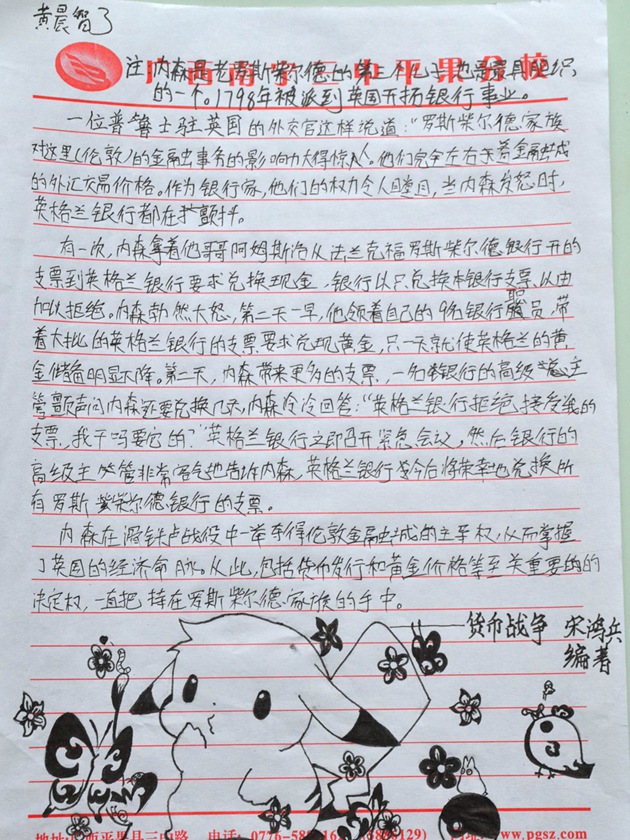 黄晨智
注：内森是老罗斯柴尔德的第三个儿子，也是最具胆识
的一个。1798年被派到英国开拓银行事业。
一位普鲁士驻英国的外交官这样说道："罗斯柴尔德家族
对这里(伦敦)的金融事务的影响力大得惊人。他们完全左右于着金融城
的外汇交易价格。作为银行家，他们的权力令人瞠目，当内森发怒时，
英格兰银行都在颤抖。
有一次，内森拿着他哥阿姆斯洛从法兰克福罗斯柴尔德银行开的
支票到英格兰银行要求兑换现金，银行以只兑换本银行支票以由
加以拒绝。内森勃然大怒，第二天一早，他领着自己的9名银行职员，带
着大批的英格兰银行的支票要求兑现黄金，只一天就使英格兰的黄
金储备明显下降。第二天，内森带来更多的支票，一名银行的高级主
管颤声问内森还要兑换几天，内森冷冷回答："英格兰银行拒绝接受我的
支票，我干吗要它的？"英格兰银行立即召开紧急会议，然后银行的
高级主管非常客气地告诉内森，英格兰银行今后将荣幸地兑换所
有罗斯柴尔德银行的支票。
内森在滑铁卢战役中一举夺得伦敦金融城的主导权，从而掌握
了英国的经济命脉。从此，包括货币发行和黄金价格等至关重要的的
决定权，一直把持在罗斯柴尔德家族的手中。
货币战争 宋鸿兵
编著
电话：0776-58
www.pgsz.